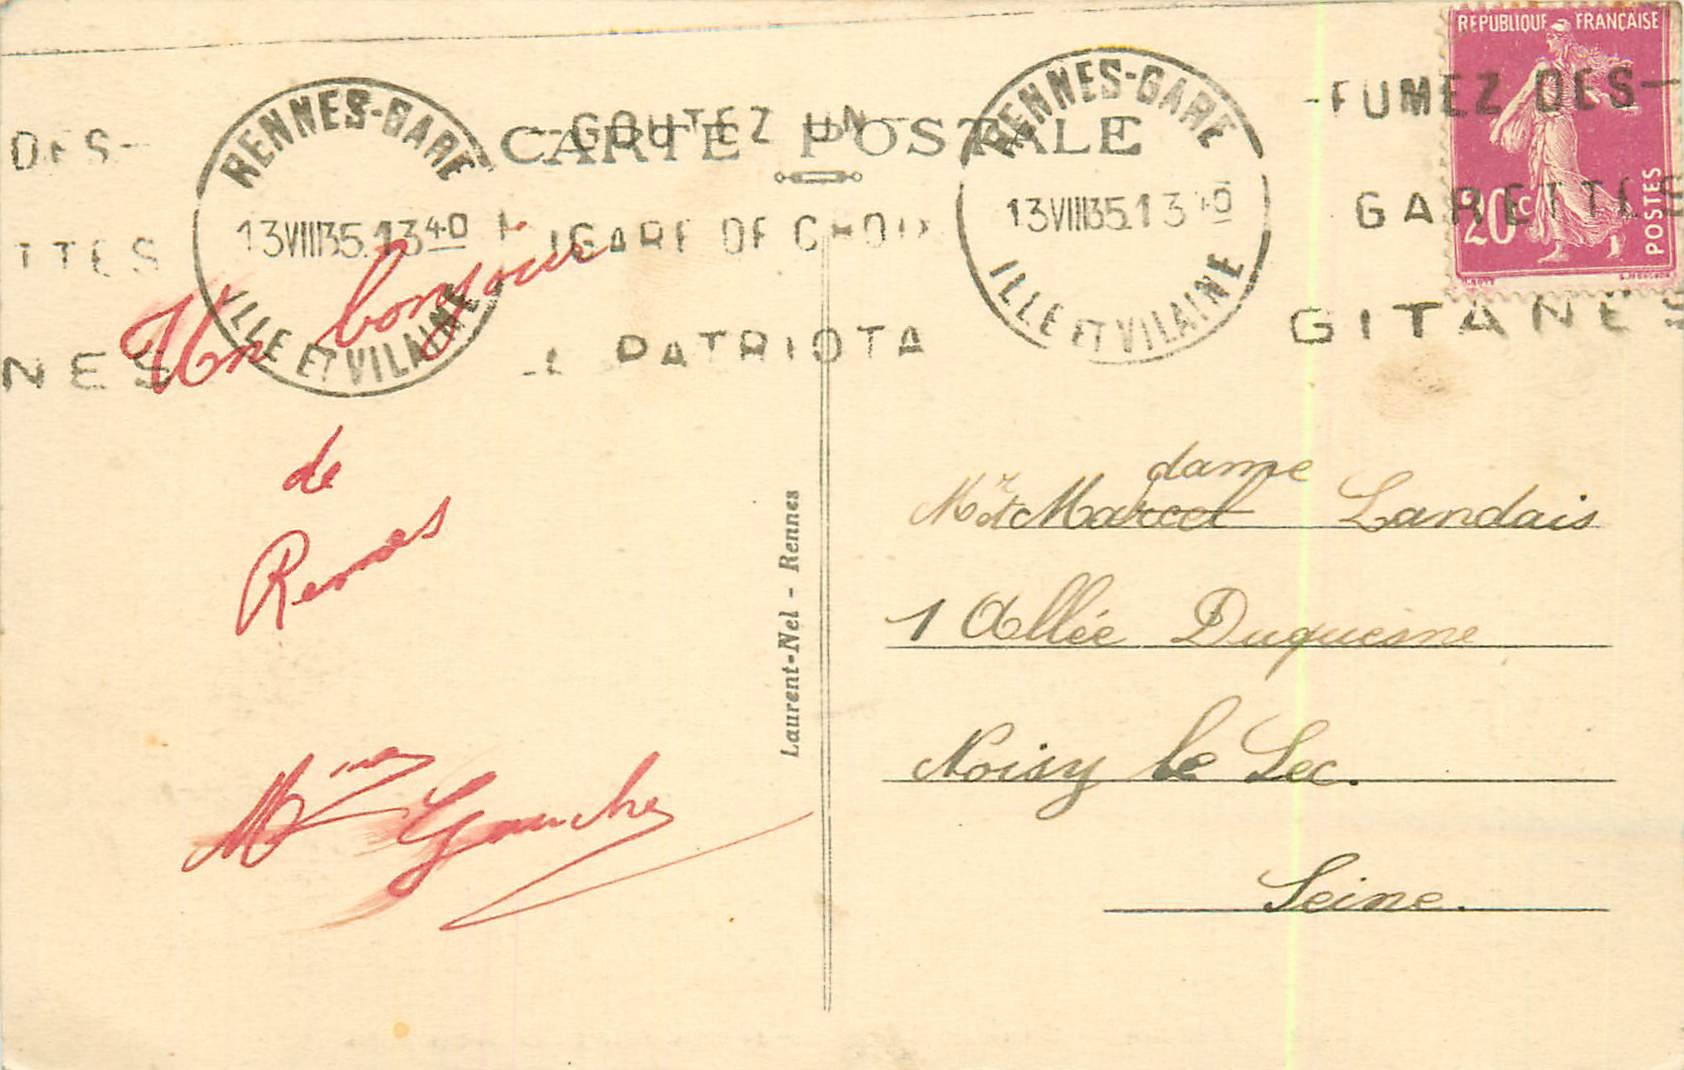 CARTE POSTALE
RENNES-GARE
13VIII35.13 40
ILLE ET VILAINE
DES-
TTES
NES
GOUTEZ UN
CIGARE DE CHOIX
PATRIOTA
RENNES-GARE
13VIII35.13 40
ILLE ET VILAINE
-FUMEZ DES-
GARETTES
GITANES
REPUBLIQUE FRANÇAISE
20c
POSTES
Un bonjour
de
Rennes
Mme Gauche
Laurent-Nel - Rennes
dame
Mr et Marcel Landais
1 Allée Duquesne
Noisy le Sec.
Seine.